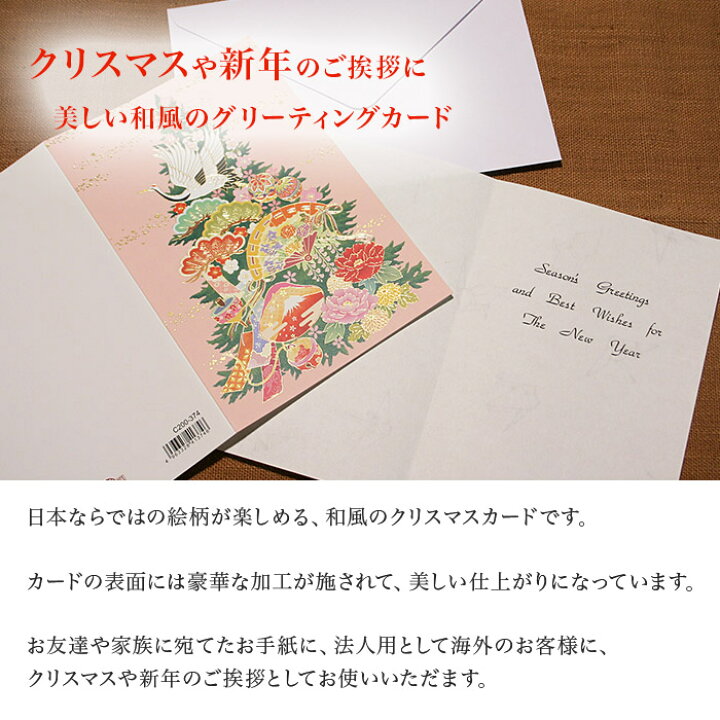 クリスマスや新年のご挨拶に
美しい和風のグリーティングカード
Season's Greetings
and Best Wishes for
The New Year
C200-374
日本ならではの絵柄が楽しめる、和風のクリスマスカードです。
カードの表面には豪華な加工が施されて、美しい仕上がりになっています。
お友達や家族に宛てたお手紙に、法人用として海外のお客様に、
クリスマスや新年のご挨拶としてお使いいただます。